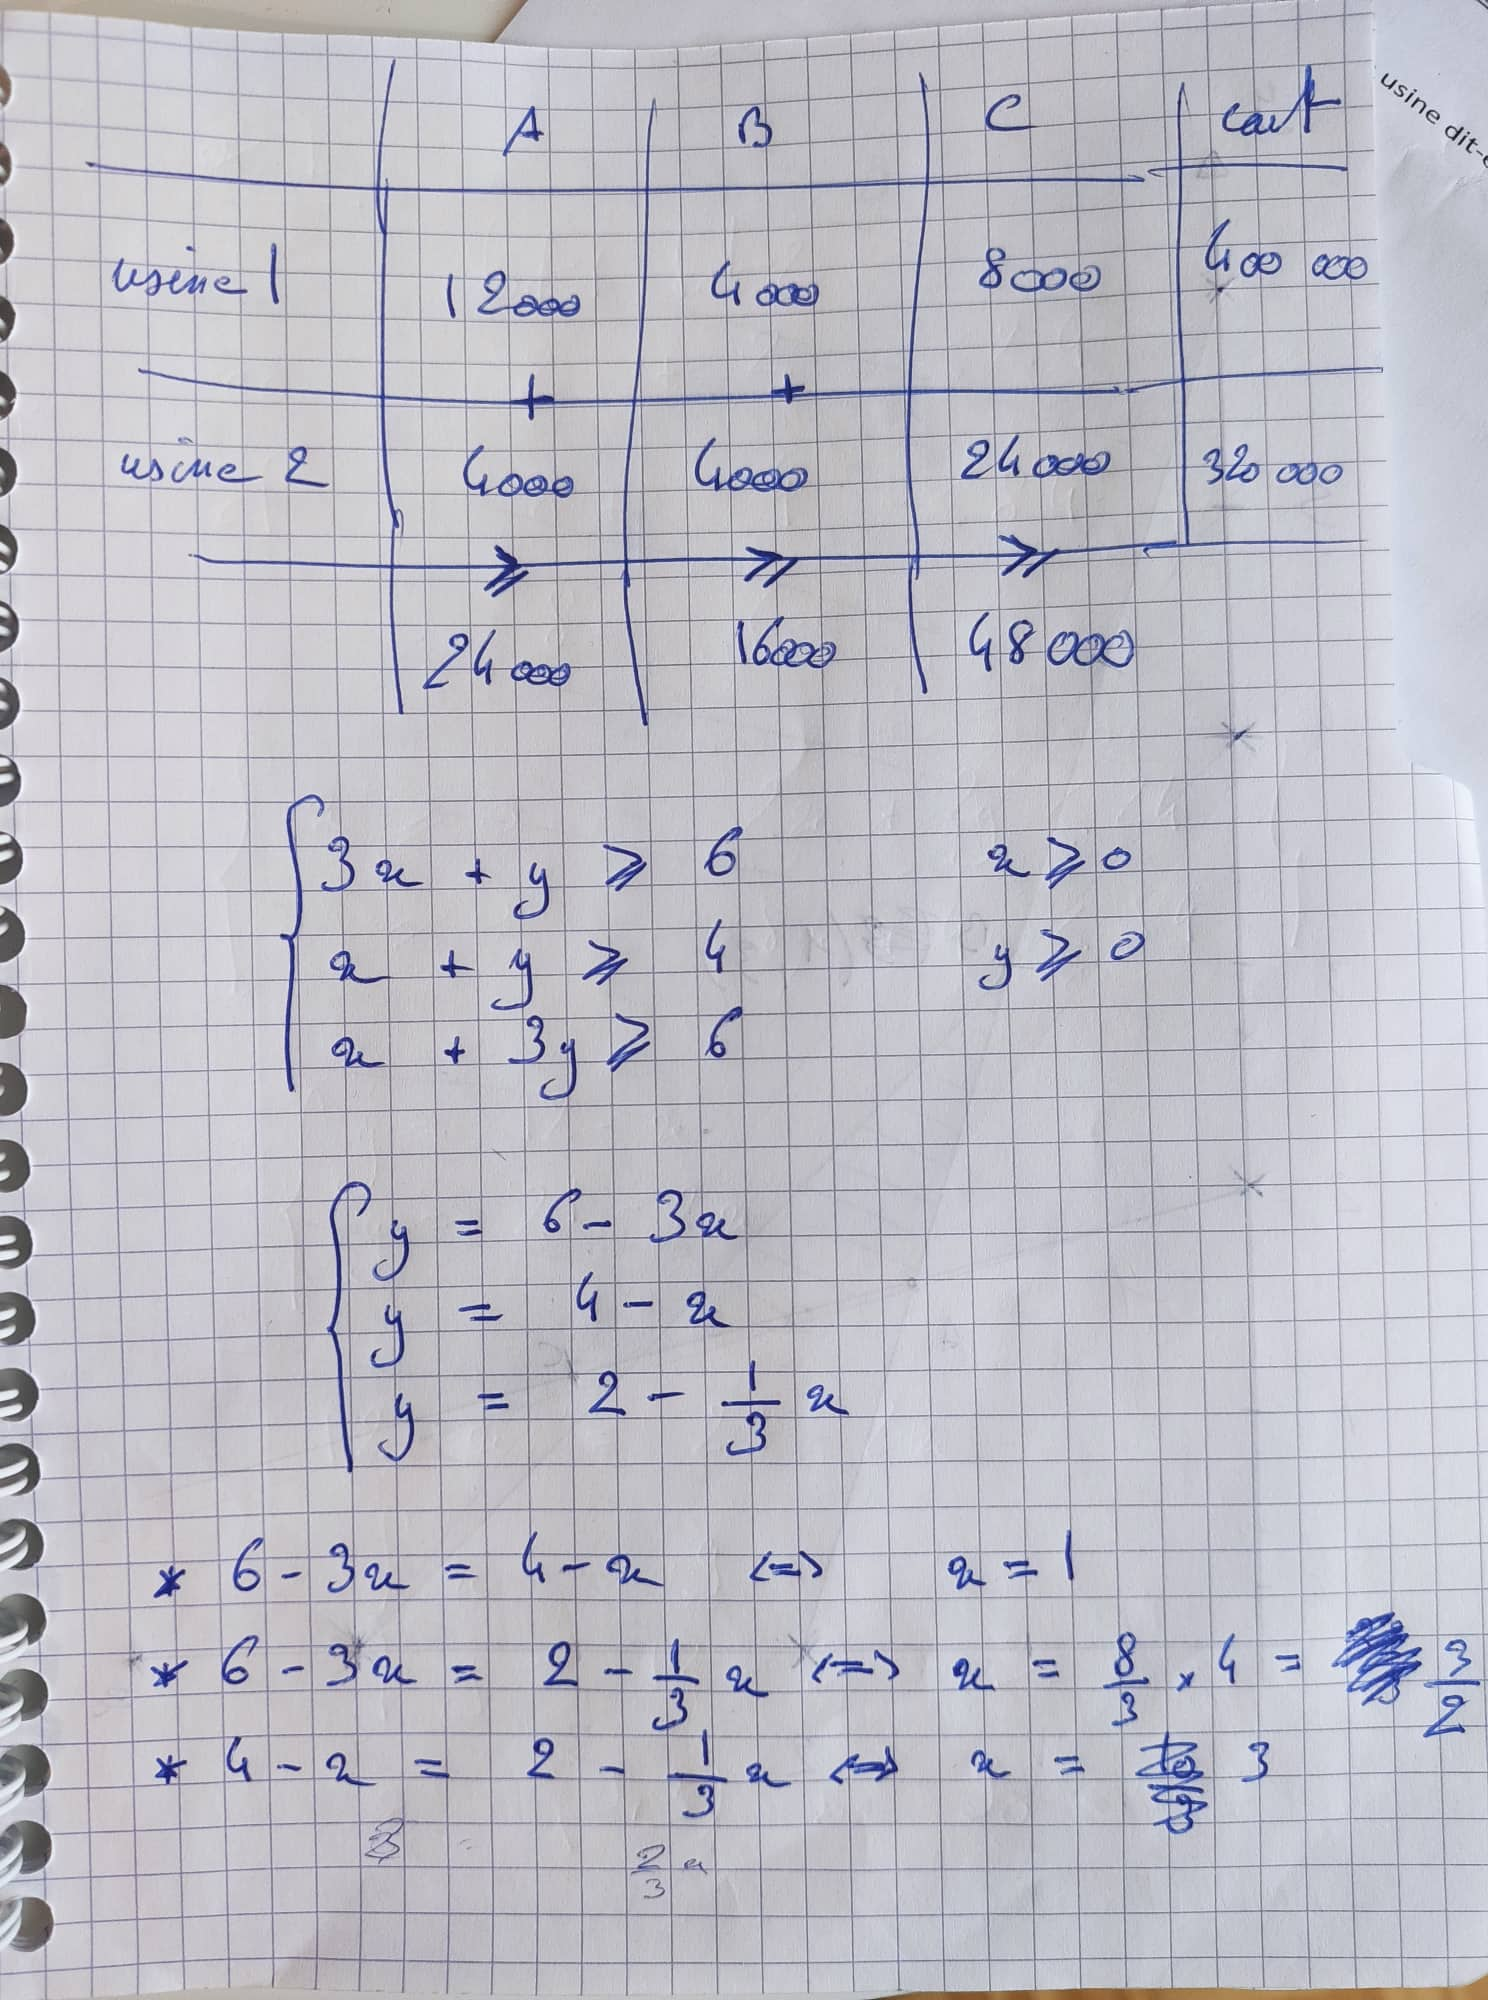 usine dit-
A B C cout
usine 1 12000 4000 8000 400 000
+ +
usine 2 4000 4000 24000 320 000
⩾ ⩾ ⩾
24000 16000 48000
3x + y ⩾ 6 x ⩾ 0
x + y ⩾ 4 y ⩾ 0
x + 3y ⩾ 6
y = 6 - 3x
y = 4 - x
y = 2 - 1/3 x
* 6 - 3x = 4 - x <=> x = 1
* 6 - 3x = 2 - 1/3 x <=> x = 8/3 × 4 = 3/2
* 4 - x = 2 - 1/3 x <=> x = 3
3 2/3 x